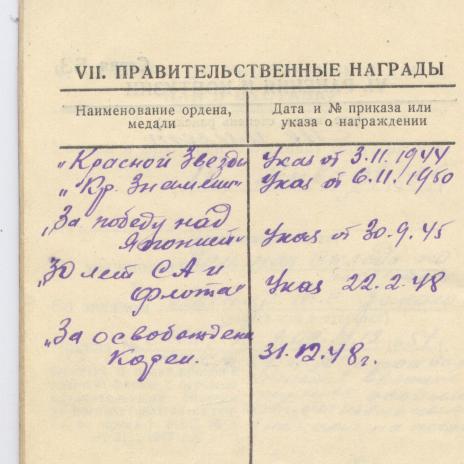 VII. ПРАВИТЕЛЬСТВЕННЫЕ НАГРАДЫ
Наименование ордена, медали
Дата и № приказа или указа о награждении
„Красной Звезды Указ от 3.11.1944
„Кр. Знамени" Указ от 6.11.1950
„За победу над
Японией" Указ от 30.9.45
„30 лет СА и
Флота" Указ 22.2.48
„За освобождени
Кореи. 31.12.48г.